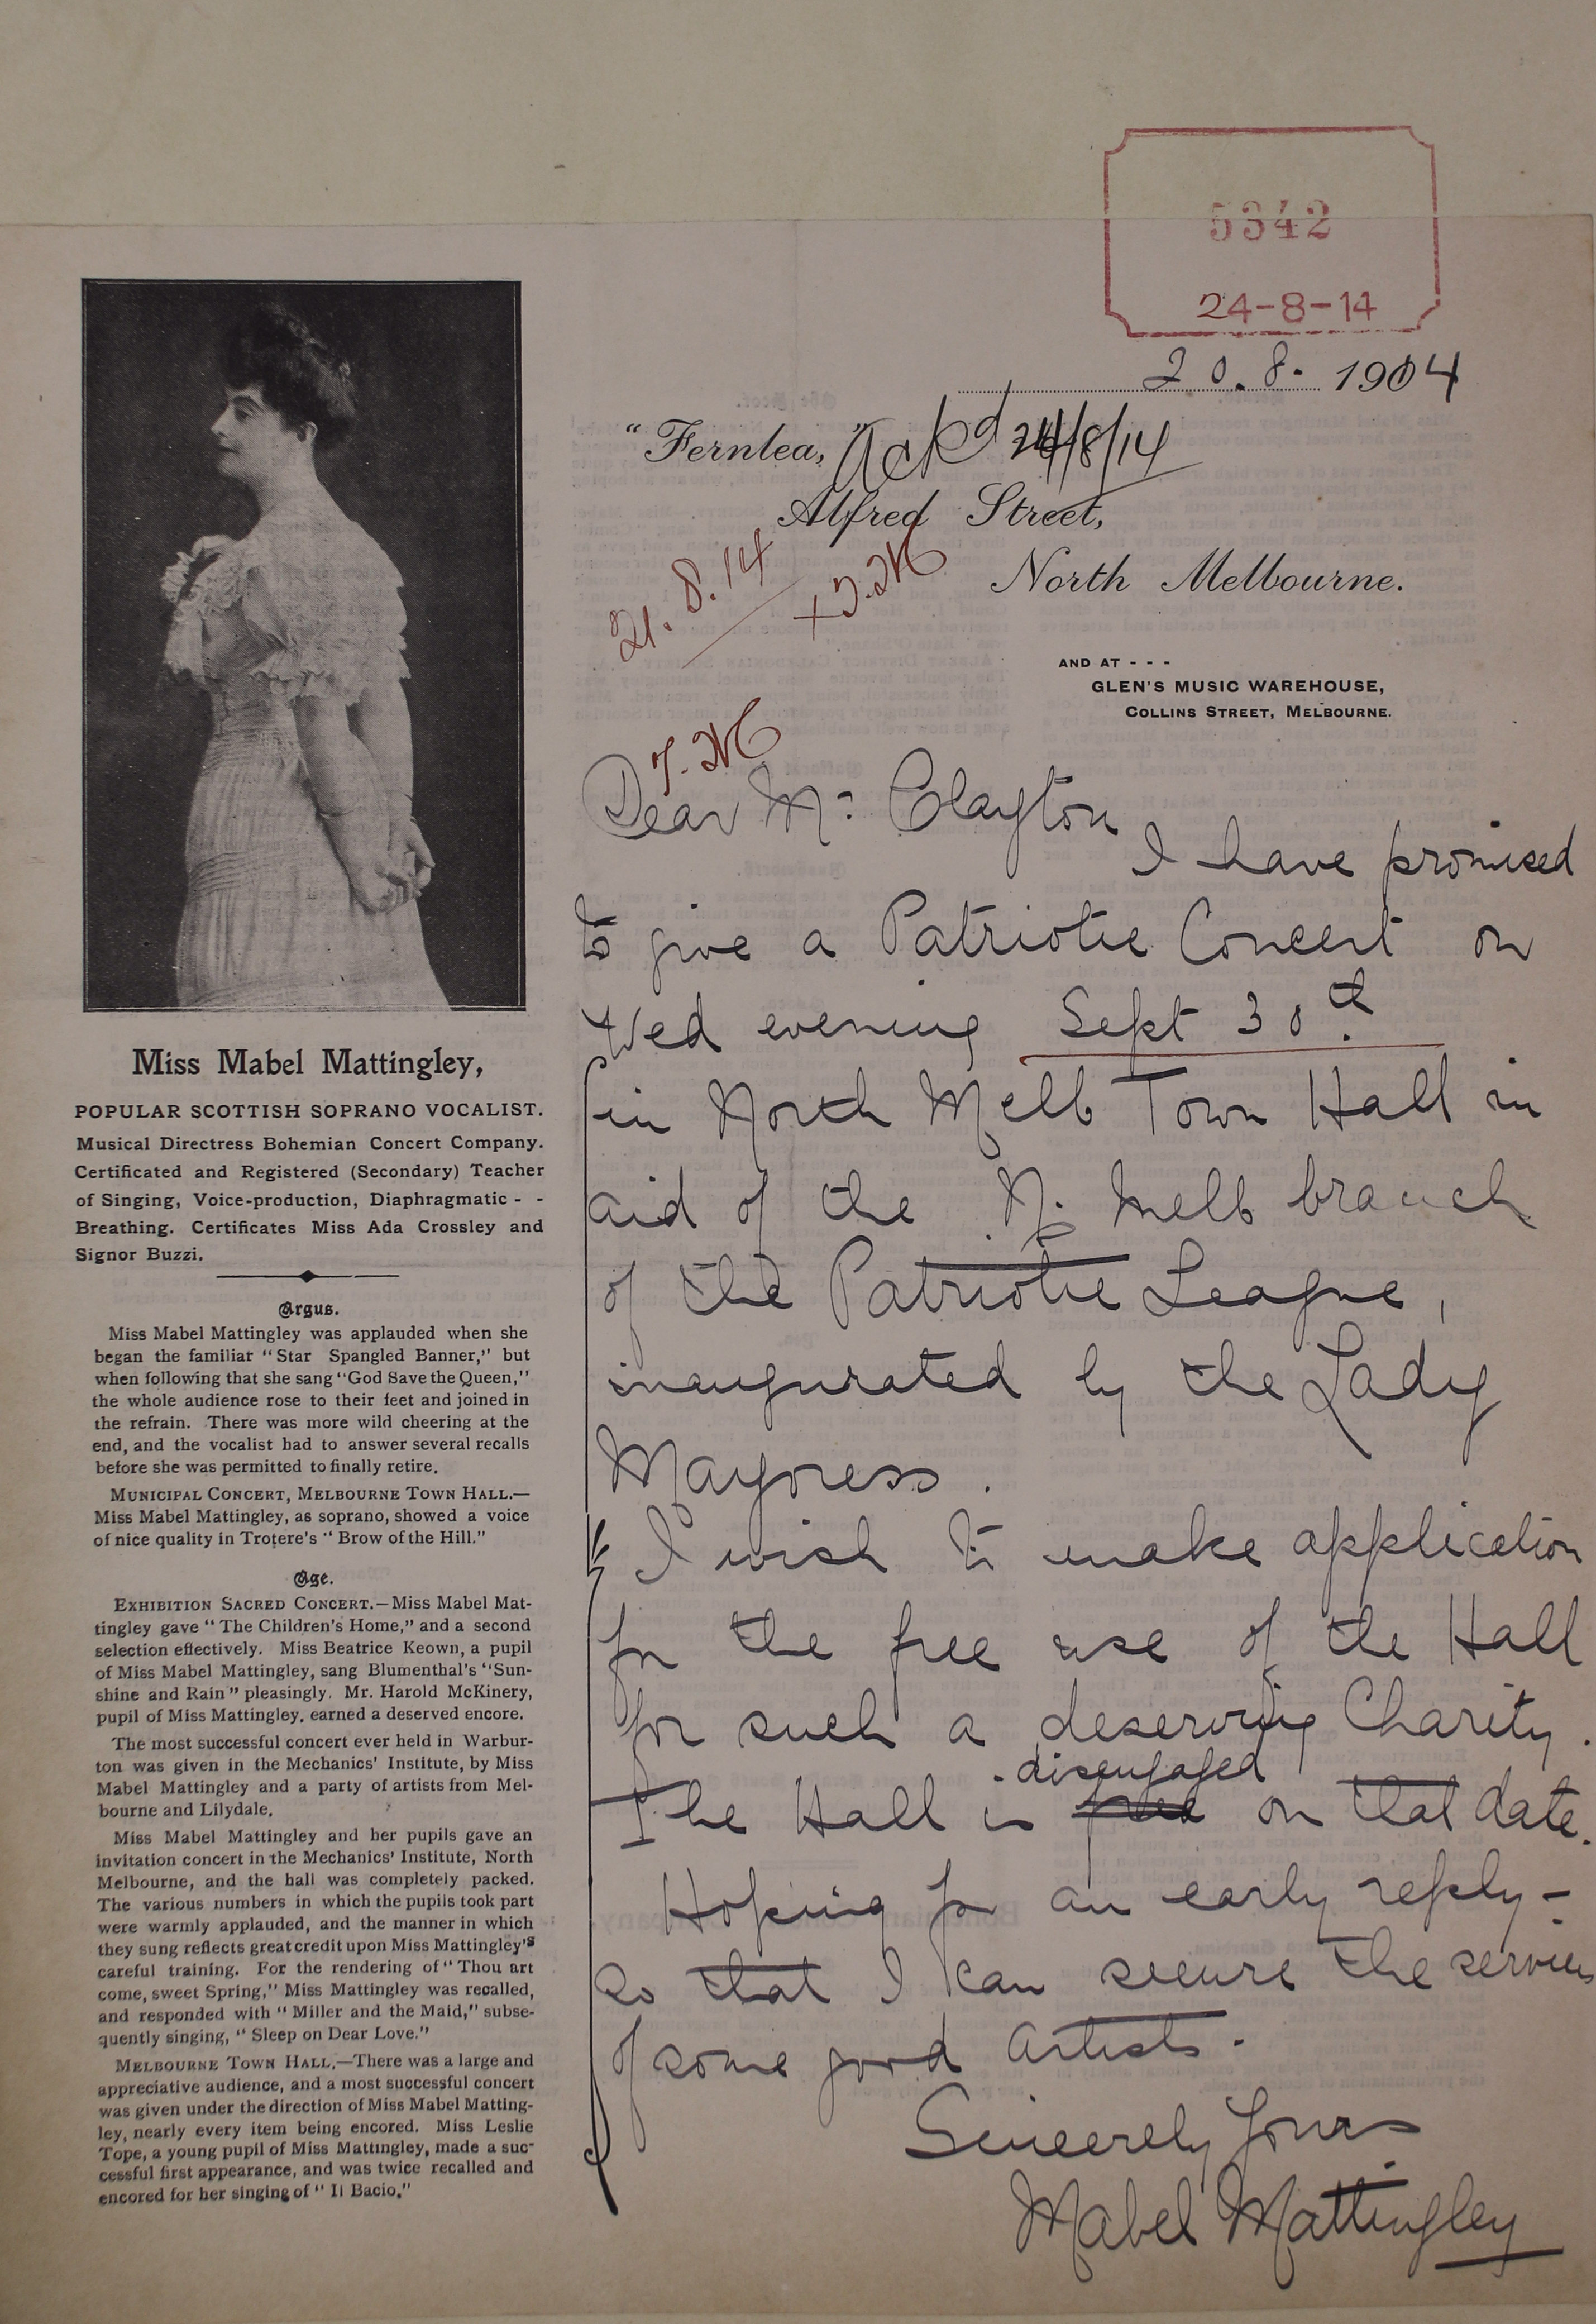 5342
24-8-14
20.8. 1914
"Fernlea,"
Ackd 24/8/14
Alfred Street,
North Melbourne.
21.8.14
AND AT - - -
GLEN'S MUSIC WAREHOUSE,
COLLINS STREET, MELBOURNE.
Dear Mr Clayton
I have promised
to give a Patriotic Concert on
Wed evening Sept 30th
in North Melb Town Hall in
aid of the N. Melb branch
of the Patriotic League,
inaugurated by the Lady
Mayoress.
I wish to make application
for the free use of the Hall
for such a deserving Charity.
The Hall is free disengaged on that date.
Hoping for an early reply -
so that I can secure the services
of some good Artists.
Sincerely Yours
Mabel Mattingley
Miss Mabel Mattingley,
POPULAR SCOTTISH SOPRANO VOCALIST.
Musical Directress Bohemian Concert Company.
Certificated and Registered (Secondary) Teacher
of Singing, Voice-production, Diaphragmatic - -
Breathing. Certificates Miss Ada Crossley and
Signor Buzzi.
Argus.
Miss Mabel Mattingley was applauded when she
began the familiar "Star Spangled Banner," but
when following that she sang "God Save the Queen,"
the whole audience rose to their feet and joined in
the refrain. There was more wild cheering at the
end, and the vocalist had to answer several recalls
before she was permitted to finally retire.
MUNICIPAL CONCERT, MELBOURNE TOWN HALL.—
Miss Mabel Mattingley, as soprano, showed a voice
of nice quality in Trotere's "Brow of the Hill."
Age.
EXHIBITION SACRED CONCERT.—Miss Mabel Mat-
tingley gave "The Children's Home," and a second
selection effectively. Miss Beatrice Keown, a pupil
of Miss Mabel Mattingley, sang Blumenthal's "Sun-
shine and Rain" pleasingly. Mr. Harold McKinery,
pupil of Miss Mattingley, earned a deserved encore.
The most successful concert ever held in Warbur-
ton was given in the Mechanics' Institute, by Miss
Mabel Mattingley and a party of artists from Mel-
bourne and Lilydale.
Miss Mabel Mattingley and her pupils gave an
invitation concert in the Mechanics' Institute, North
Melbourne, and the hall was completely packed.
The various numbers in which the pupils took part
were warmly applauded, and the manner in which
they sung reflects great credit upon Miss Mattingley's
careful training. For the rendering of "Thou art
come, sweet Spring," Miss Mattingley was recalled,
and responded with "Miller and the Maid," subse-
quently singing, "Sleep on Dear Love."
MELBOURNE TOWN HALL.—There was a large and
appreciative audience, and a most successful concert
was given under the direction of Miss Mabel Matting-
ley, nearly every item being encored. Miss Leslie
Tope, a young pupil of Miss Mattingley, made a suc-
cessful first appearance, and was twice recalled and
encored for her singing of "Il Bacio."